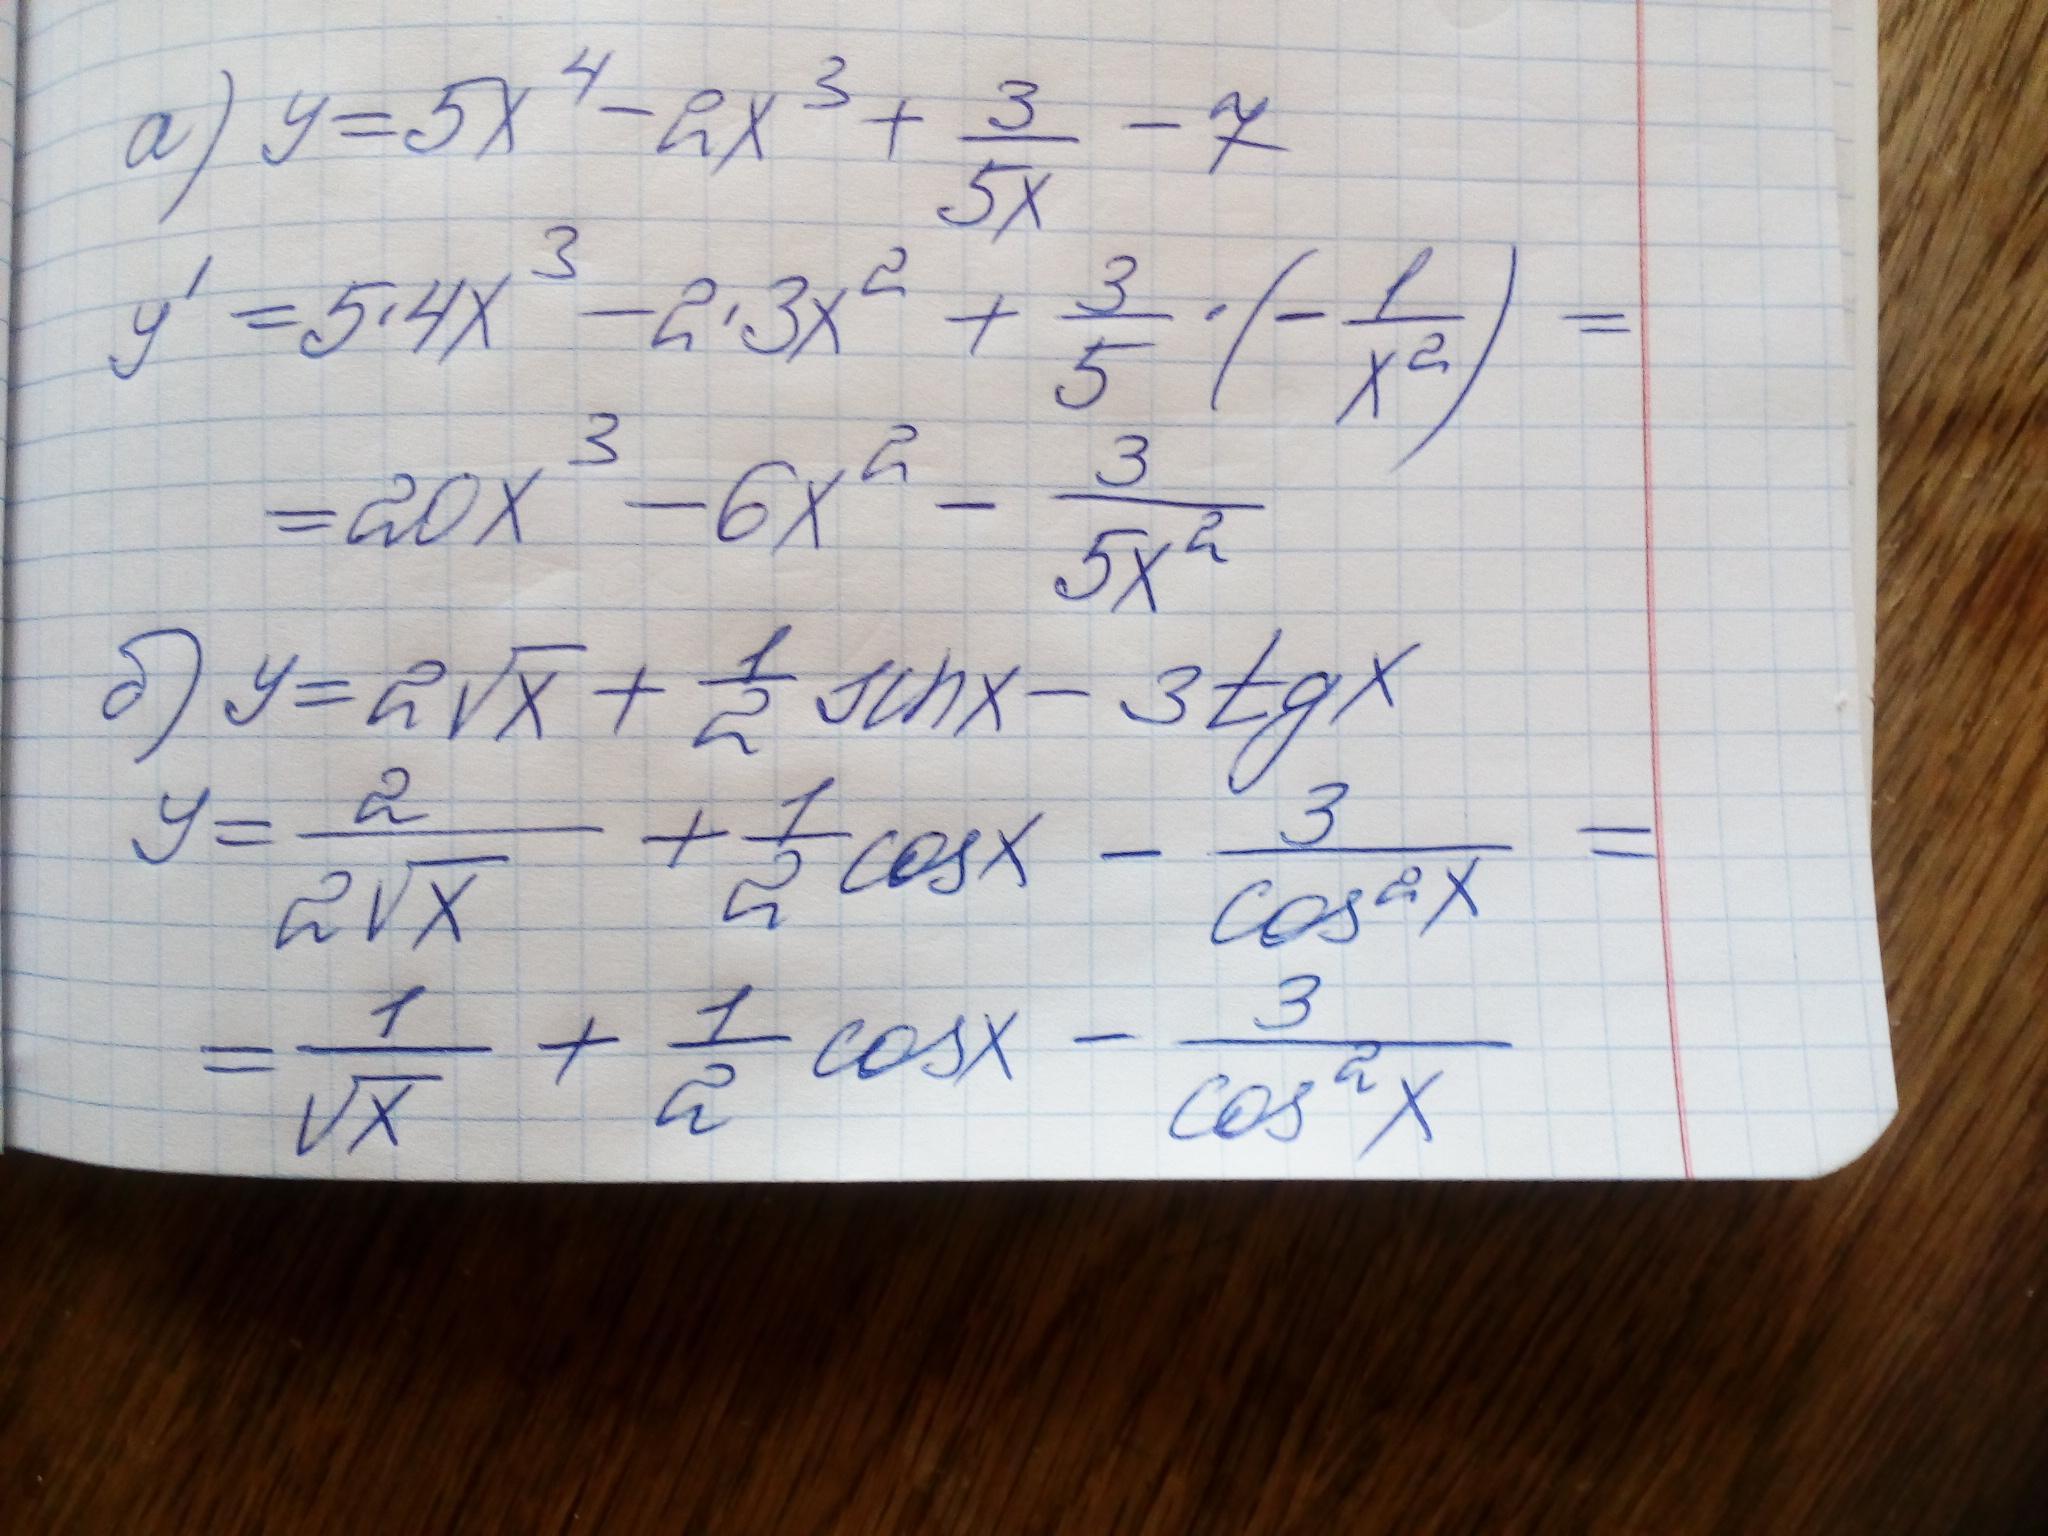 а) y = 5x⁴ - 2x³ + 3/5x - 7
y' = 5·4x³ - 2·3x² + 3/5 · (-1/x²) =
= 20x³ - 6x² - 3/5x²
б) y = 2√x + 1/2 sin x - 3 tg x
y = 2/2√x + 1/2 cos x - 3/cos²x =
= 1/√x + 1/2 cos x - 3/cos²x